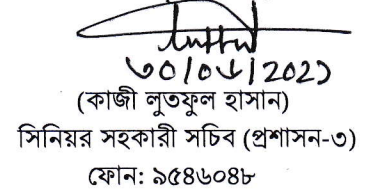 ৩০/০৬/2021
(কাজী লুতফুল হাসান)
সিনিয়র সহকারী সচিব (প্রশাসন-৩)
ফোন: ৯৫৪৬০৪৮